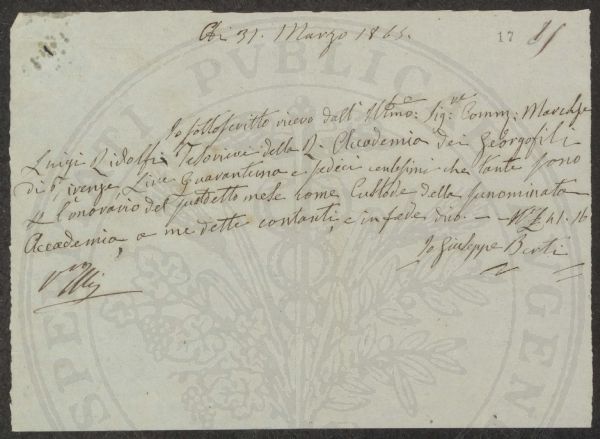 Di 31. Marzo 1865.
17
Io sottoscritto ricevo dall' Illmo: Sig:re Comm: Marchse
Luigi Ridolfi Tesoriere della R. Accademia dei Georgofili
di Firenze, Lire Quarantuna e sedici centesimi che tante sono
p l'onorario del suddetto mese come Custode della prenominata
Accademia, a me dette contanti, e in fede dico. — N £ 41. 16
Io Giuseppe Berti